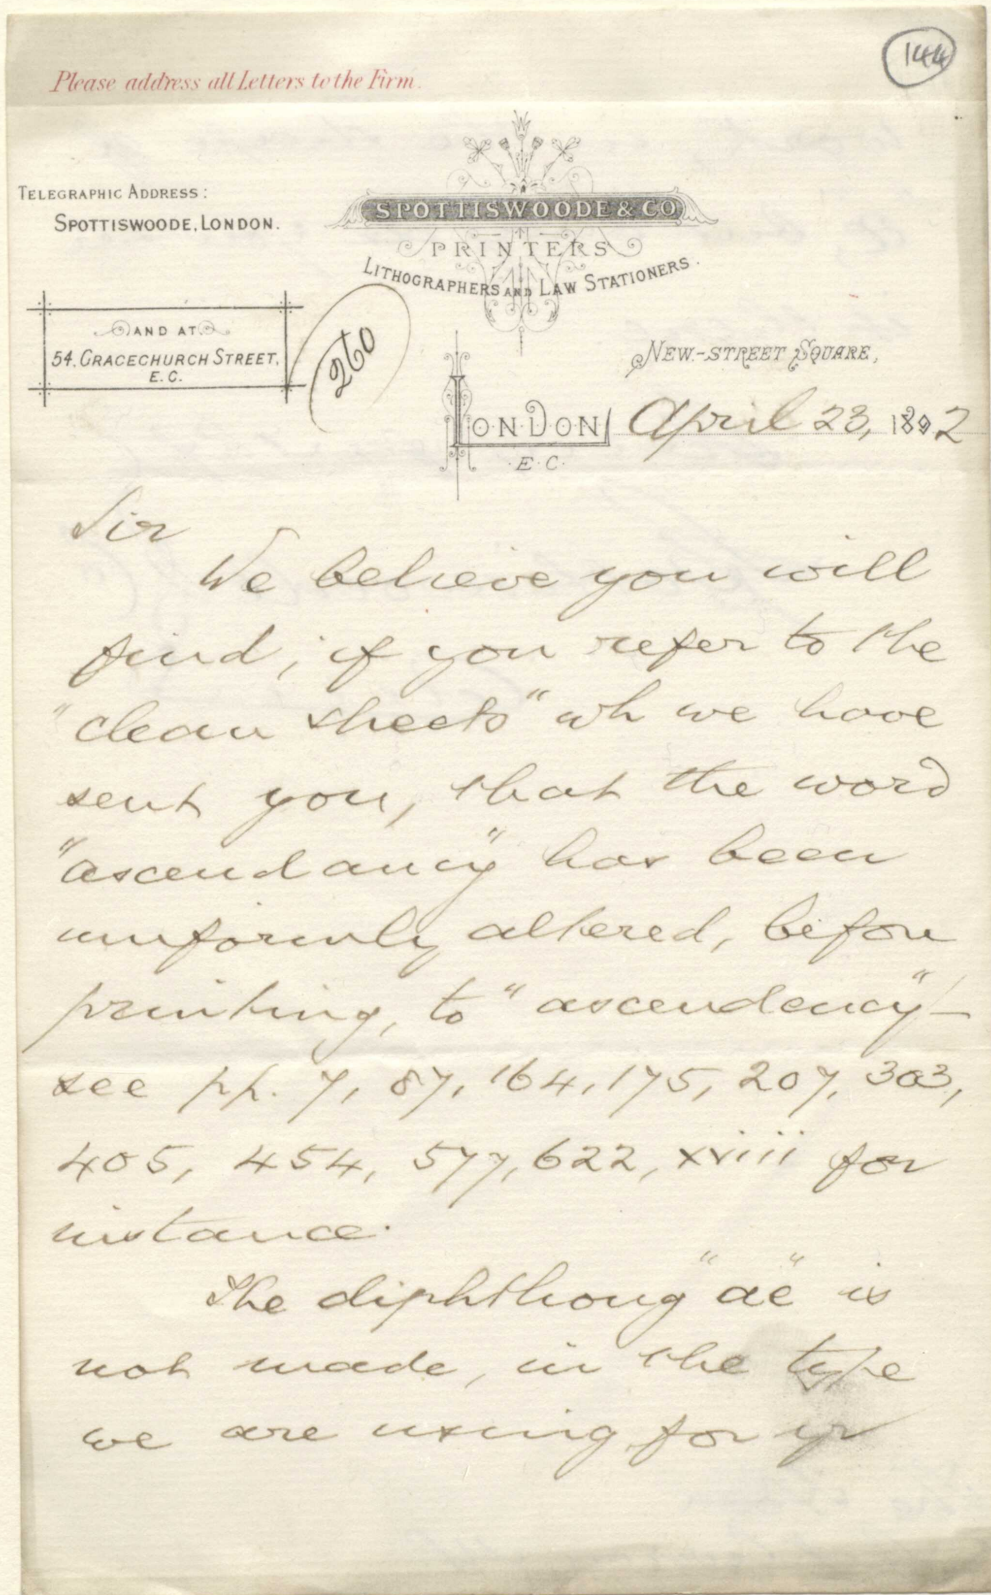 144
Please address all Letters to the Firm.
TELEGRAPHIC ADDRESS:
SPOTTISWOODE, LONDON.
SPOTTISWOODE & CO
PRINTERS
LITHOGRAPHERS AND LAW STATIONERS.
AND AT
54, GRACECHURCH STREET,
E.C.
260
NEW-STREET SQUARE,
LONDON April 23, 1892
E.C.
Sir
We believe you will
find, if you refer to the
"clean sheets" wh we have
sent you, that the word
"ascendancy" has been
uniformly altered, before
printing, to "ascendency" –
see pp. 7, 87, 164, 175, 207, 303,
405, 454, 577, 622, xviii for
instance.
The diphthong "ae" is
not made, in the type
we are using for yr